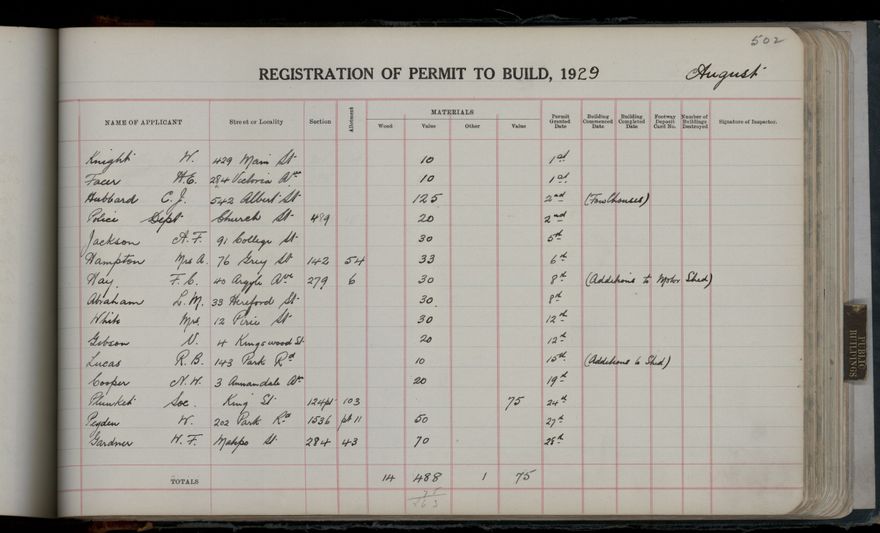 502
REGISTRATION OF PERMIT TO BUILD, 1929 August
NAME OF APPLICANT Street or Locality Section Allotment MATERIALS Permit Granted Date Building Commenced Date Building Completed Date Footway Deposit Card No. Number of Buildings Destroyed Signature of Inspector.
Wood Value Other Value
Knight W. 429 Main St 10 1st
Facer H.E. 284 Victoria Ave 10 1st
Hubbard C. J. 542 Albert St 125 2nd (Fowlhouses)
Police Dept Church St 489 20 2nd
Jackson A. F. 91 College St 30 5th
Hampton Mrs A. 76 Grey St 142 54 33 6th
Hay. F. C. 40 Argyle Ave 279 6 30 8th (Additions to Motor Shed)
Abraham L. M. 33 Hereford St 30 8th
White Mrs. 12 Pirie St 30 12th
Gibson V. 4 Kingswood St 20 12th
Lucas R. B. 143 Park Rd 10 15th (Additions to Shed)
Cooper N. H. 3 Annandale Ave 20 19th
Plunket Soc. King St 124pt 103 75 24th
Pegden W. 202 Park Rd 1536 pt 11 50 27th
Gardner H. F. St 284 43 70 28th
TOTALS 14 488 1 75
75
563
PUBLIC BUILDINGS